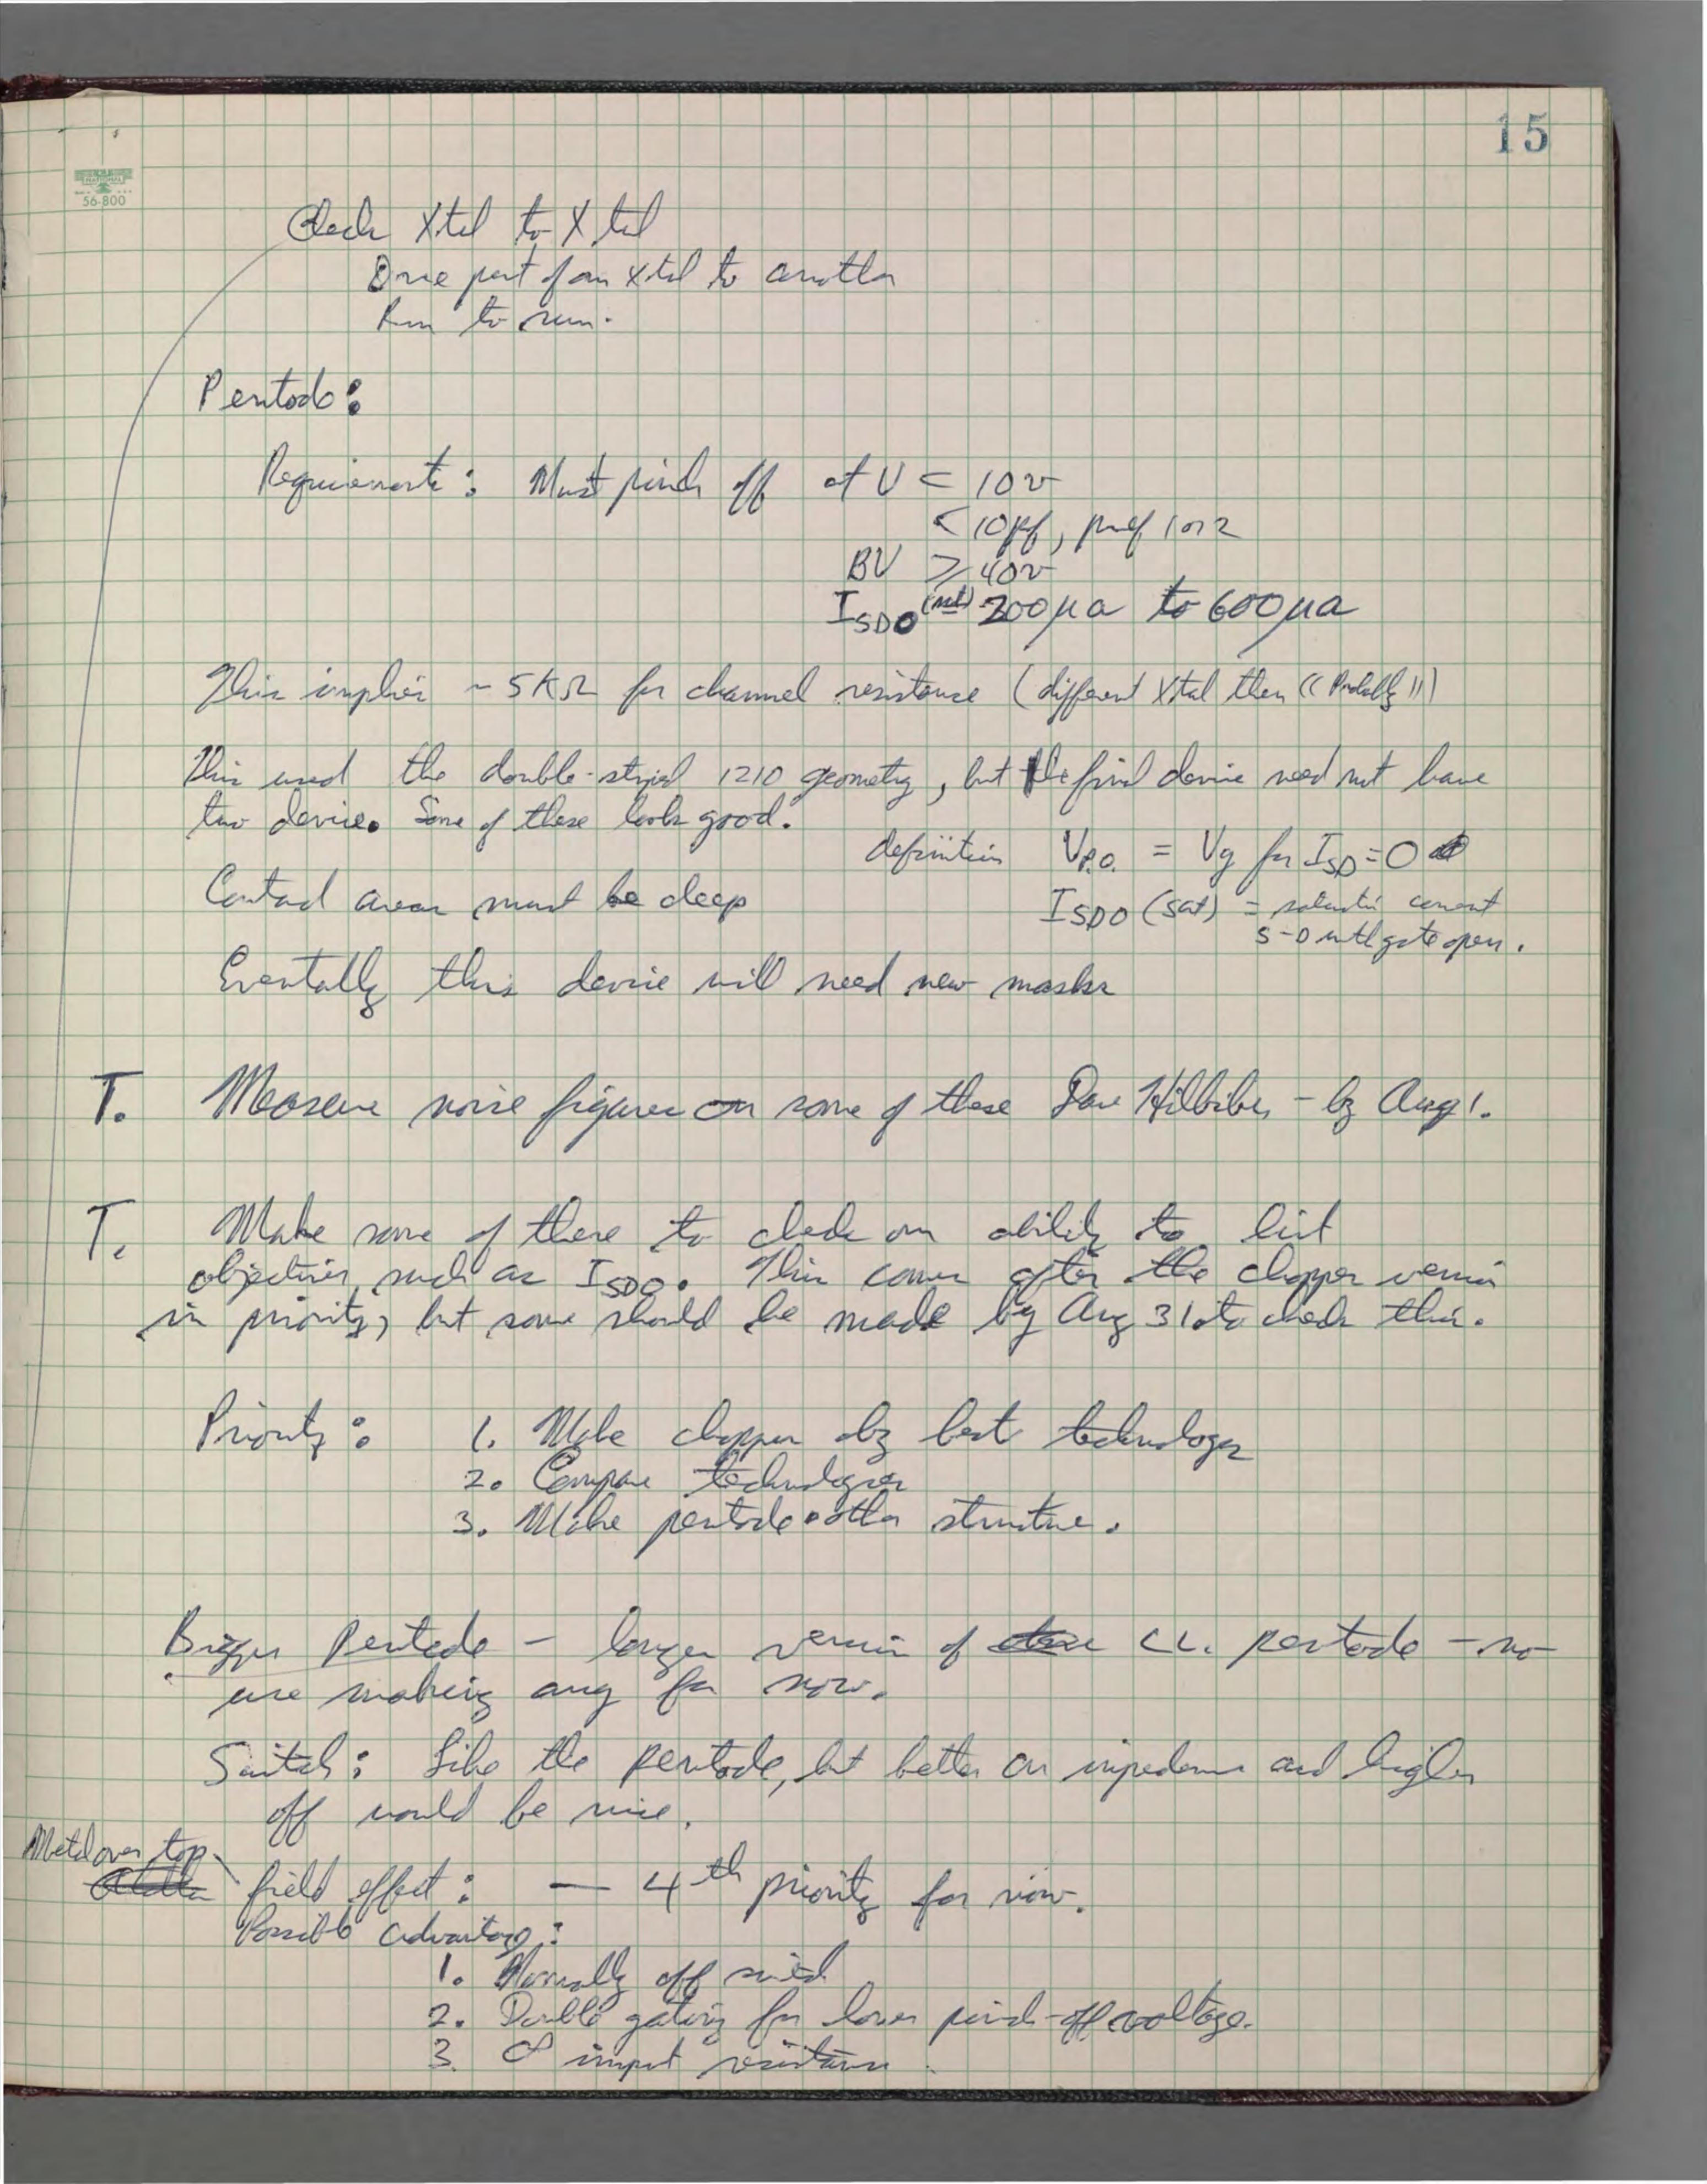 15
NATIONAL
56-800
Check Xtal to Xtal
One part of an xtal to another
Run to run.
Pentode:
Requirements: Must pinch off at V < 10v
< 10pf, pref 1 or 2
BV ≥ 40v
I_SDO (sat) 200μa to 600μa
This implies ~ 5KΩ for channel resistance (different Xtal then ((Probably))
This used the double-striped 1210 geometry, but the final device need not have
two device. Some of these look good.
definition V_P.O. = Vg for I_SD = 0
Contact areas must be deep
I_SDO (sat) = saturation current
S-D with gate open.
Eventally this device will need new masks
T. Measure noise figures on some of these Dave Hilbiber - by Aug 1.
T. Make some of these to check our ability to hit
objectives such as I_SDO. This comes after the chopper version
in priority, but some should be made by Aug 31 to check this.
Priority: 1. Make chopper by best technology
2. Compare technologies
3. Make pentode other structure.
Bigger Pentode - longer version of pentode - no
use making any for now.
Switch: Like the pentode, but better on impedance and higher
off would be nice.
Metal over top
field effect: — 4th priority for now.
Possible advantages:
1. Normally off switch
2. Double gating for lower pinch-off voltage.
3. ∞ input resistance.